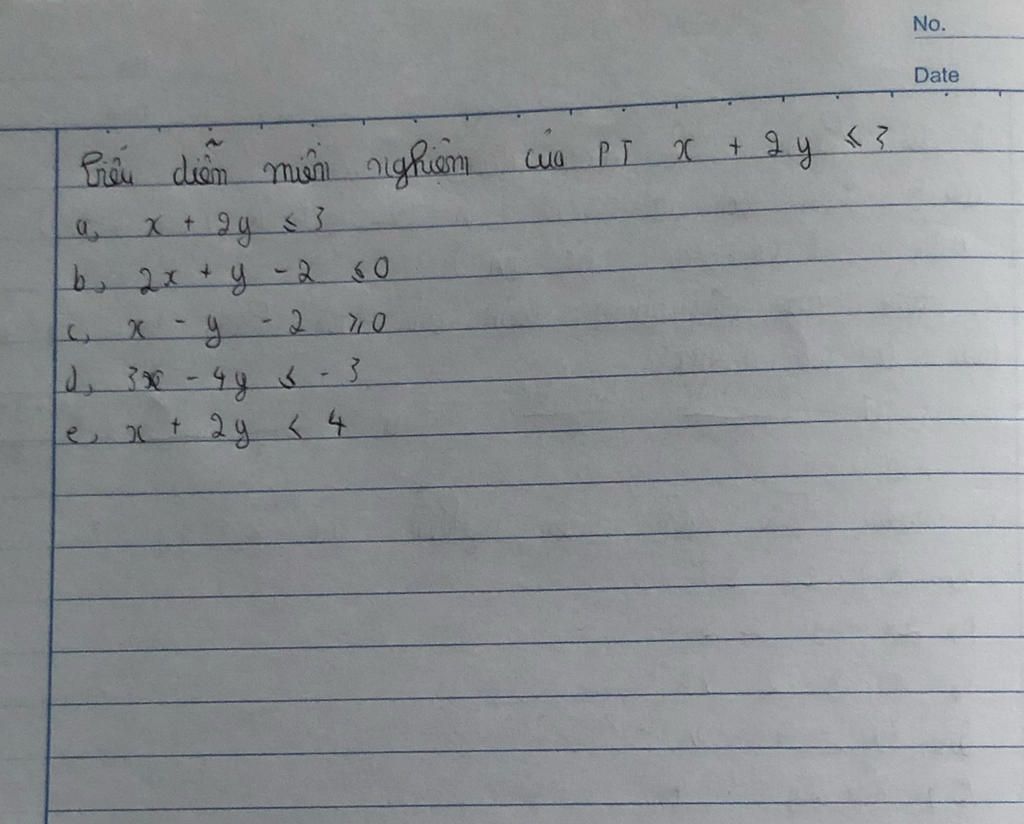 No.
Date
Biểu diễn miền nghiệm của PT x + 2y ≤ 3
a, x + 2y ≤ 3
b, 2x + y - 2 ≤ 0
c, x - y - 2 ≥ 0
d, 3x - 4y ≤ - 3
e, x + 2y < 4